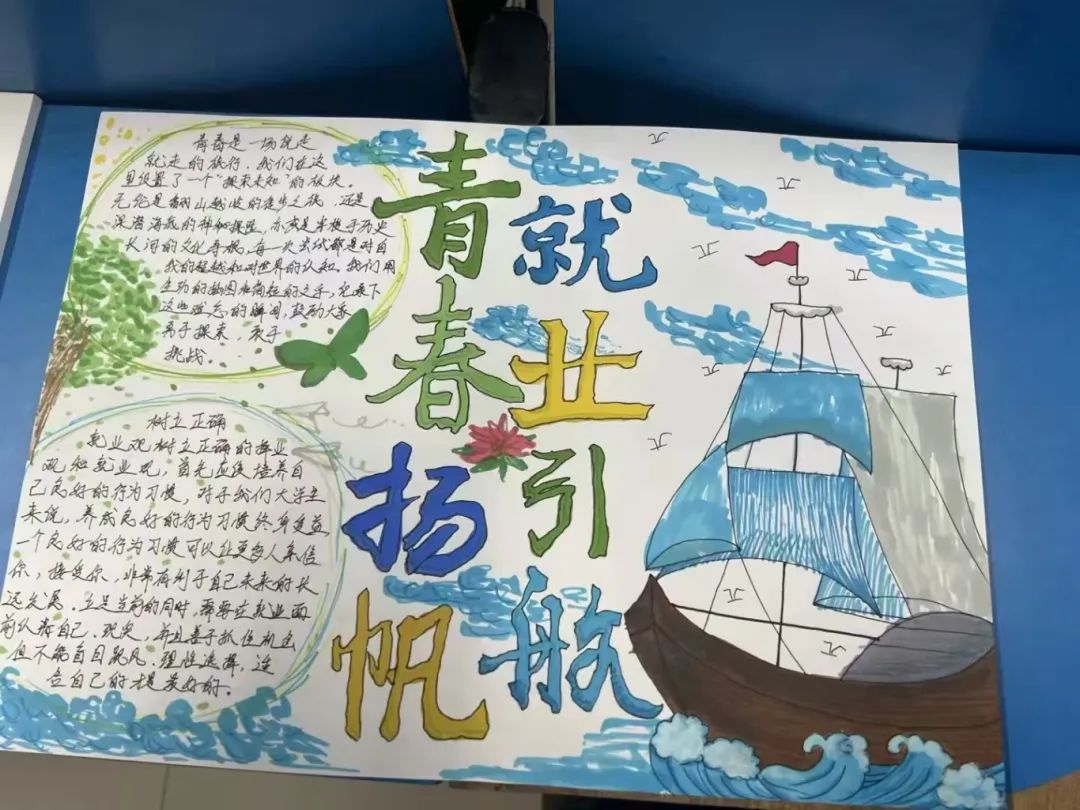 青春扬帆
就业引航
青春是一场说走
就走的旅行,我们在这
里设置了一个“探索未知”的板块。
无论是翻山越岭的徒步之旅,还是
深潜海底的神秘探险,亦或是穿梭于历史
长河的文化寻根,每一次尝试都是对自
我的超越和对世界的认知,我们用
生动的插图和简短的文字,记录下
这些难忘的瞬间,鼓励大家
勇于探索,敢于
挑战。
树立正确
就业观树立正确的择业
观和就业观,首先应该培养自
己良好的行为习惯,对于我们大学生
来说,养成良好的行为习惯终身受益
一个良好的行为习惯可以让更多人来信
你,接受你,非常有利于自己未来的长
远发展。立足当前的同时,需要在就业面
前认清自己,现实,并且善于抓住机会
但不能盲目跟风,理性选择,适
合自己的才是最好的。